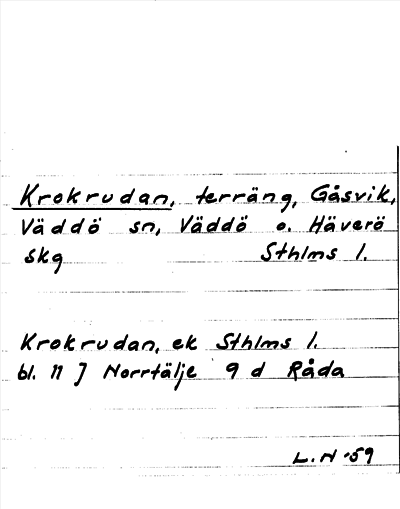 Krokrudan, terräng, Gåsvik,
Väddö sn, Väddö o. Häverö
skg Sthlms l.
Krokrudan, ek Sthlms l.
bl. 11 J Norrtälje 9 d Råda
L.N -59